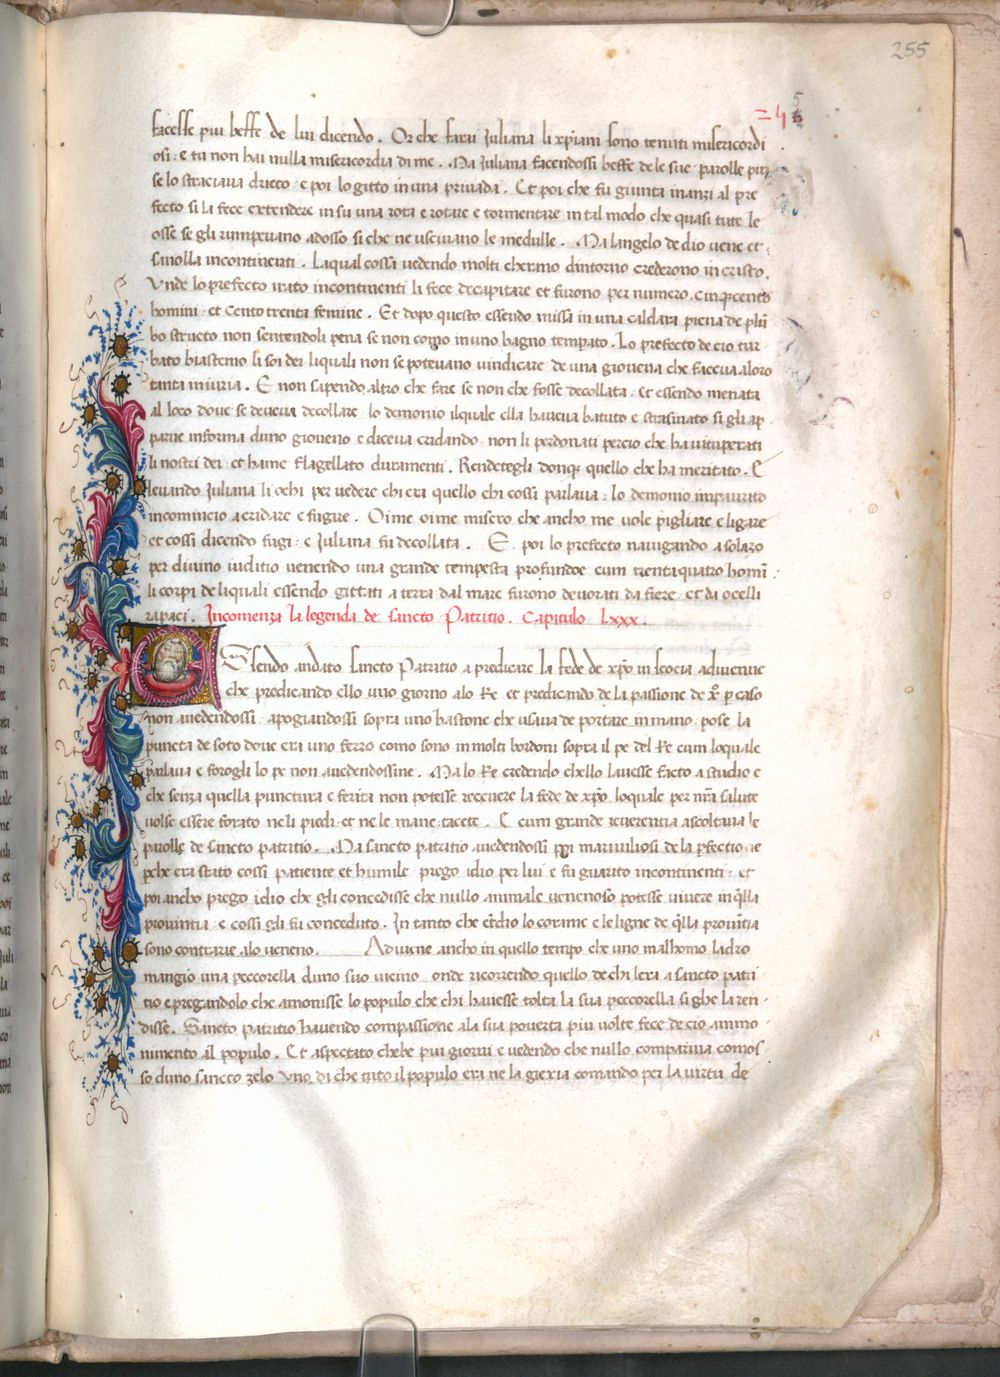 255
5
facesse piu beffe de lui dicendo. Or che farai Juliana li xp̄iani sono tenuti misericordi
osi: e tu non hai nulla misericordia di me. Ma Juliana facendossi beffe de le sue parolle piu
se lo straciaua drieto: e poi lo gitto in una priuada. Et poi che fu giunta inanzi al pre
fecto si la fece extendere in su una rota e rotare e tormentare in tal modo che quasi tute le
osse se gli rumpeuano adosso si che ne usciuano le medulle. Ma langelo de dio uene et
sanolla incontinenti. Laqual cossa uedendo molti cherano dintorno crederono in cristo.
Vnde lo prefecto irato incontinenti li fece decapitare et furono per numero cinquecento
homini: et cento trenta femine. Et dopo questo essendo missa in una caldara piena de piū
bo structo non sentendoli pena se non como in uno bagno tempato. Lo prefecto de cio tur
bato biastemo li soi dei liquali non se poteuano uindicare de una giouena che faceua a loro
tanta iniuria. E non sapendo altro che fare se non che fosse decollata. Et essendo menata
al loco doue se deueua decollare lo demonio ilquale ella haueua batuto e strasinato si gli ap
parue in forma duno giouene e diceua cridando non li perdonati percio che ha uituperati
li nostri dei et hame flagellato duramenti. Rendetegli donq̄ quello che ha meritato. E
leuando Juliana li ochi per uedere chi era quello chi cossi parlaua: lo demonio impaurito
incomincio a cridare e fugire. Oime oime misero che ancho me uole pigliare e ligare
et cossi dicendo fugi: e Juliana fu decollata. E poi lo prefecto nauigando a solazo
per diuino iuditio uenendo una grande tempesta profundoe cum trenta quatro homīi
li corpi de liquali essendo gittati a terra dal mare furono deuorati da fiere et da ocelli
rapaci. Incomenza la legenda de sancto Patritio. Capitulo lxxx.
Essendo andato sancto Patritio a predicare la fede de xp̄o in scocia aduenne
che predicando ello uno giorno alo Re et predicando de la passione de x̄p̄ p caso
non auedendossi apogiandossi sopra uno bastone che usaua de portare in mano pose la
puncta de soto doue era uno ferro como sono in molti bordoni sopra il pe del Re cum loquale
parlaua e forogli lo pe non auedendossine. Ma lo Re credendo chello lauesse facto a studio e
che senza quella punctura e ferita non potesse receuere la fede de xp̄o loquale per nr̄a salute
uolse essere forato ne li piedi et ne le mane tacete. E cum grande reuerentia ascoltaua le
parolle de sancto patritio. Ma sancto patritio auedendossi poi marauiliosi de la pfectione
pche era stato cossi patiente et humile prego idio per lui e fu guarito incontinenti: et
poi ancho prego idio che gli concedisse che nullo animale uenenoso potesse uiuere in q̄lla
prouintia e cossi gli fu conceduto. In tanto che etdio lo corame e le ligne de q̄lla prouītia
sono contrarie alo ueneno. Aduene ancho in quello tempo che uno malhomo ladro
mangio una peccorella duno suo uicino onde ricorendo quello de chi lera a sancto patri
tio e pregandolo che amonisse lo populo che chi hauesse tolta la sua peccorella si ghe la ren
disse. Sancto patritio hauendo compassione ala sua pouerta piu uolte fece de cio amo
nimento al populo. Et aspectato chebe piu giorni e uedendo che nullo comparaua comos
so duno sancto zelo uno di che tuto il populo era ne la giexia comando per la uirtu de